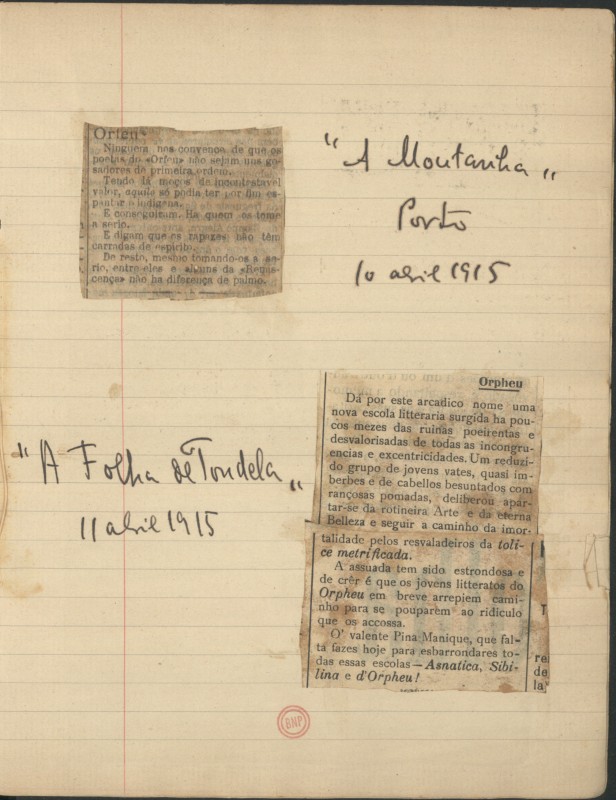 Orfeu
Ninguem nos convence de que os
poetas do «Orfeu» não sejam uns go-
sadores de primeira ordem.
Tendo lá moços de incontestavel
valor, aquilo só podia ter por fim es-
pantar o indigena.
E conseguiram. Ha quem os tome
a serio.
E digam que os rapazes não têm
carradas de espirito.
De resto, mesmo tomando-os a se-
rio, entre eles e alguns da «Renas-
cença» não ha diferença de palmo.
"A Montanha"
Porto
10 abril 1915
"A Folha de Tondela"
11 abril 1915
Orpheu
Dá por este arcadico nome uma
nova escola litteraria surgida ha pou-
cos mezes das ruinas poeirentas e
desvalorisadas de todas as incongru-
encias e excentricidades. Um reduzi-
do grupo de jovens vates, quasi im-
berbes e de cabellos besuntados com
rançosas pomadas, deliberou apar-
tar-se da rotineira Arte e da eterna
Belleza e seguir a caminho da imor-
talidade pelos resvaladeiros da toli-
ce metrificada.
A assuada tem sido estrondosa e
de crêr é que os jovens litteratos do
Orpheu em breve arrepiem cami-
nho para se pouparem ao ridiculo
que os accossa.
O' valente Pina Manique, que fal-
ta fazes hoje para esbarrondares to-
das essas escolas—Asnatica, Sibi-
lina e d'Orpheu!
re
de
la
BNP